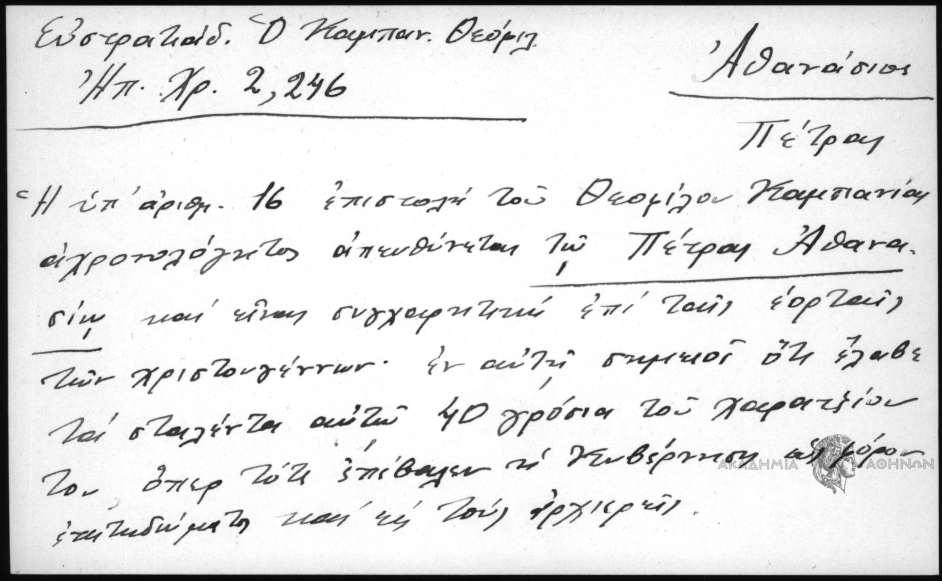 Εὐστρατιάδ. Ὁ Καμπαν. Θεόφιλ.
Ἠπ. Χρ. 2, 246
Ἀθανάσιος
Πέτρας
Ἡ ὑπ' ἀριθμ. 16 ἐπιστολή τοῦ Θεοφίλου Καμπανίας
ἀχρονολόγητος ἀπευθύνεται τῷ Πέτρας Ἀθανα-
σίῳ καί εἶναι συγχαρητική ἐπί ταῖς ἑορταῖς
τῶν Χριστουγέννων. ἐν αὐτῇ σημειοῖ ὅτι ἔλαβε
τά σταλέντα αὐτῷ 40 γρόσια τοῦ χαρατσίου
του ὅπερ τότε ἐπέβαλεν ἡ Κυβέρνησις ὡς φόρον
ἐπιτηδεύματος καί εἰς τούς ἀρχιερεῖς.
ΑΚΑΔΗΜΙΑ ΑΘΗΝΩΝ